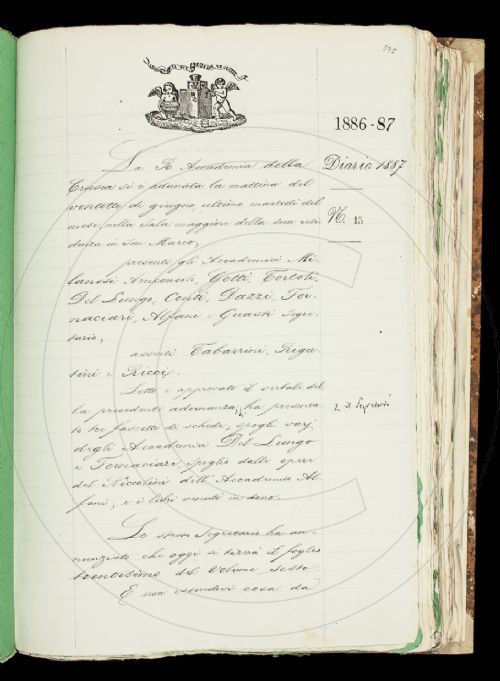 595
1886-87
Diario 1887
N. 15
La R. Accademia della
Crusca si è adunata la mattina del
ventotto di giugno, ultimo martedì del
mese, nella sala maggiore della sua resi
denza in San Marco;
presenti gli Accademici Mi
lanesi Arciconsolo, Gotti, Tortoli,
Del Lungo, Conti, Dazzi, For
naciari, Alfani e Guasti Segre
tario;
assenti Tabarrini, Rigu
tini e Ricci.
Letto e approvato il verbale del
la precedente adunanza, ha presenta
to tre fascetti di schede, spogli varj
degli Accademici Del Lungo
e Fornaciari, spoglio dalle opere
del Niccolini dell'Accademico Al
fani; e i libri venuti in dono.
il Segretario
Lo stesso Segretario ha an
nunziato che oggi si tirerà il foglio
trentesimo del Volume sesto.
E non essendovi cosa da